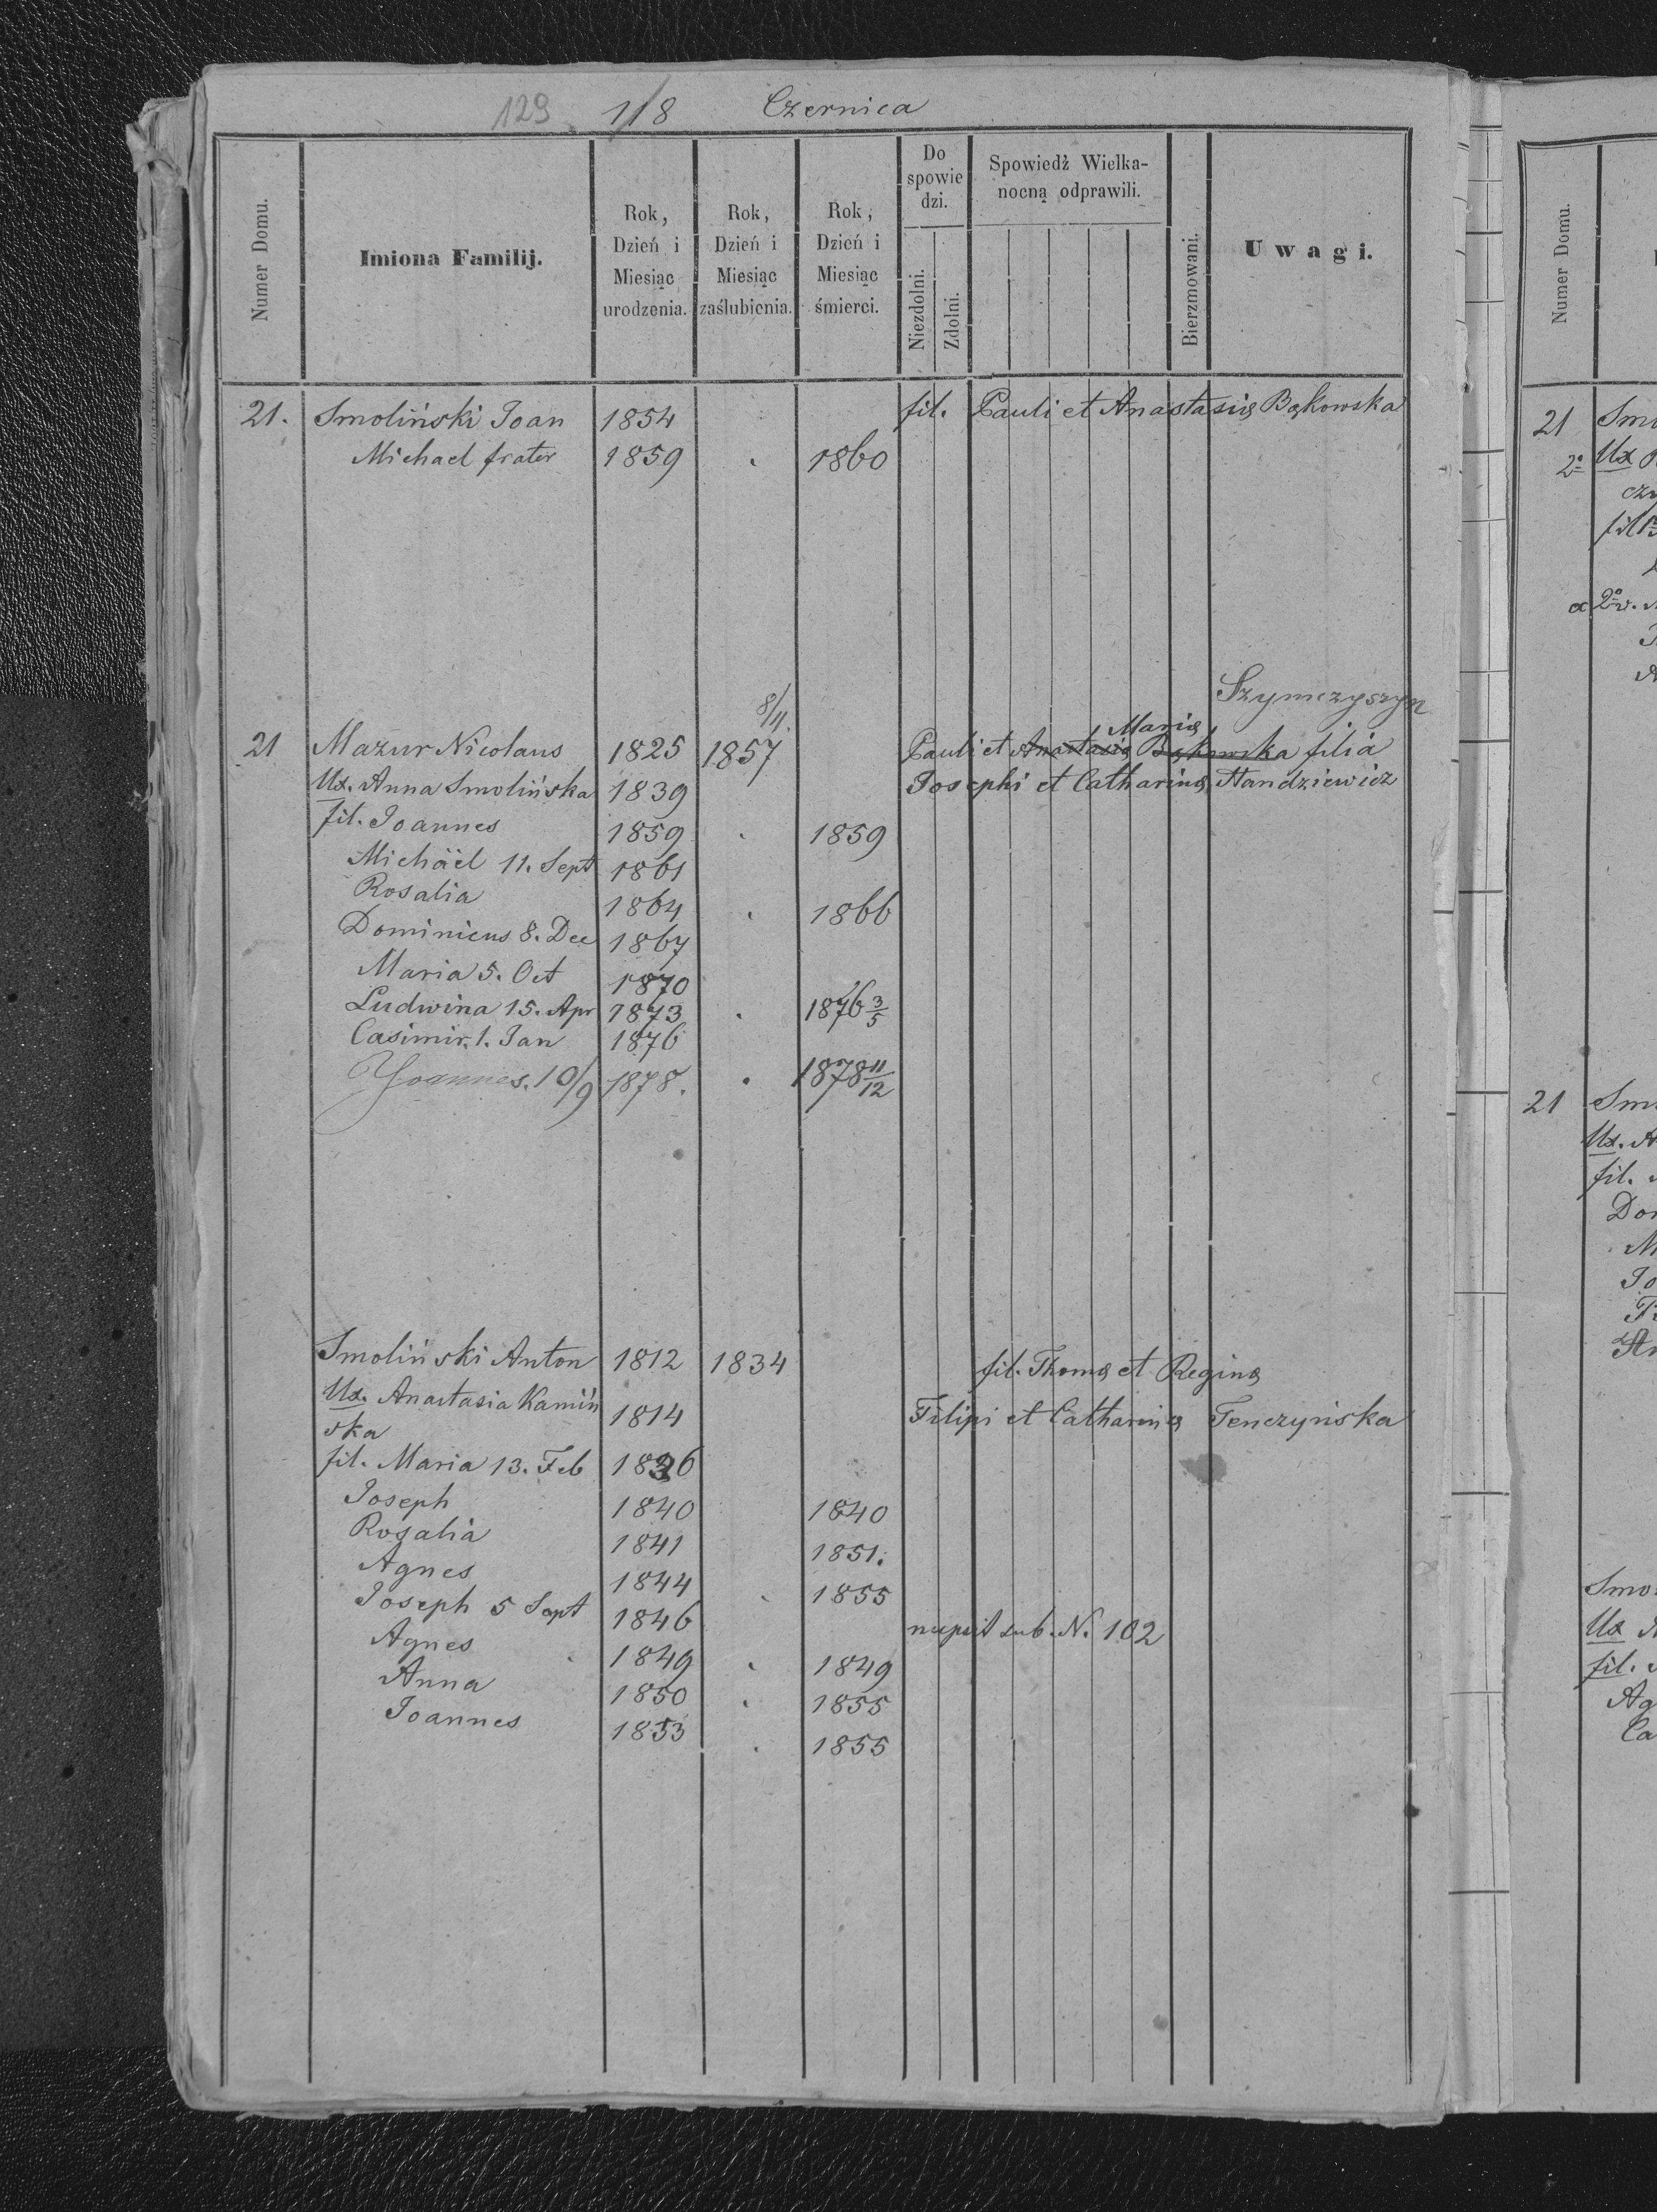 129 118 Czernica
Numer Domu.
Imiona Familij.
Rok, Dzień i Miesiąc urodzenia.
Rok, Dzień i Miesiąc zaślubienia.
Rok, Dzień i Miesiąc śmierci.
Do spowie dzi.
Niezdolni.
Zdolni.
Spowiedź Wielka-
nocną odprawili.
Bierzmowani.
Uwagi.
21. Smoliński Joan 1854 fil. Pauli et Anastasię Bąkowska
Michael frater 1859 . 1860
Szymczyszyn
8/11.
Marię
21 Mazur Nicolaus 1825 1857 Pauli et Anastasię Bąkowska filia
Ux. Anna Smolińska 1839 Josephi et Catharinę Handziewicz
fil. Joannes 1859 . 1859
Michäel 11. Sept 1861
Rosalia 1864 . 1866
Dominicus 8. Dec 1867
Maria 5. Oct 1870
Ludwina 15. Apr 1873 . 1876 3/5
Casimir. 1. Jan 1876
Joannes. 10/9 1878. . 1878 11/12
Smoliński Anton 1812 1834 fil. Thomę et Reginę
Ux. Anastasia Kamiń
ska 1814 Filipi et Catharinę Tenczyńska
fil. Maria 13. Feb 1836
Joseph 1840 1840
Rosalia 1841 1851.
Agnes 1844 . 1855
Joseph 5 Sept 1846 nupsit sub. N. 102
Agnes 1849 . 1849
Anna 1850 . 1855
Joannes 1853 . 1855
Numer Domu.
21
2o Ux
21
Ux. A
fil.
Ux
fil.